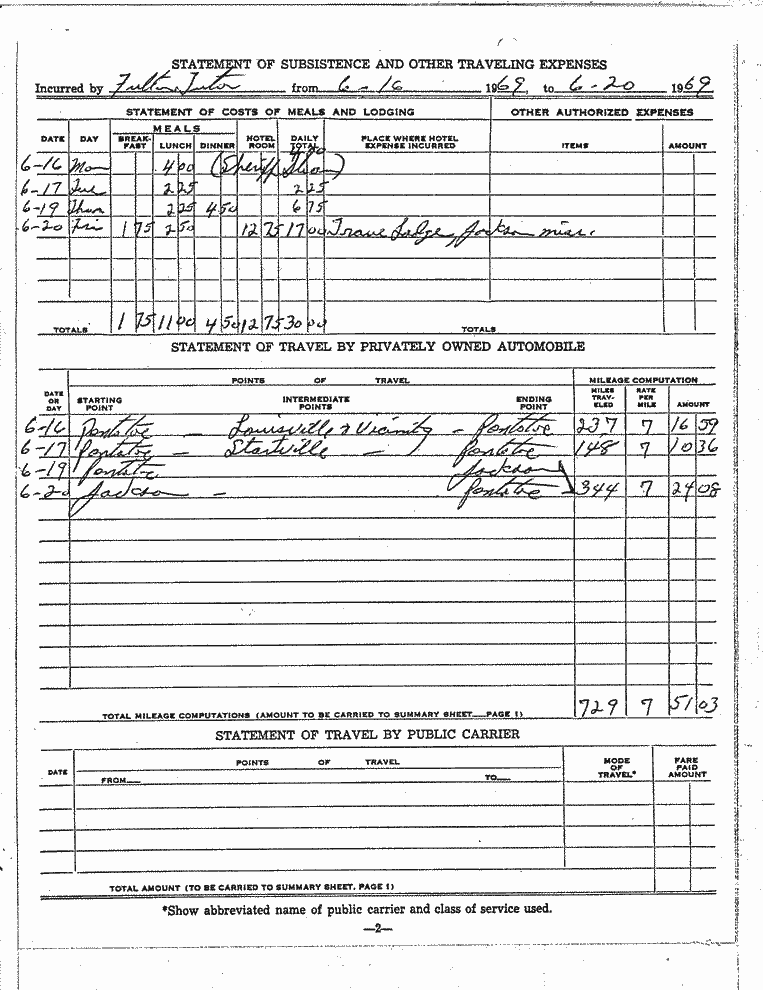 STATEMENT OF SUBSISTENCE AND OTHER TRAVELING EXPENSES
Incurred by Fulton Tutor from 6-16 1969, to 6-20 1969
STATEMENT OF COSTS OF MEALS AND LODGING OTHER AUTHORIZED EXPENSES
MEALS
DATE DAY BREAK-FAST LUNCH DINNER HOTEL ROOM DAILY TOTAL PLACE WHERE HOTEL EXPENSE INCURRED ITEMS AMOUNT
6-16 Mon 4 00 (Sheriff 4 00
6-17 Tue 2 25 2 25
6-19 Thur 2 25 4 50 6 75
6-20 Fri 1 75 2 50 12 75 17 00 Trave Lodge, Jackson miss.
TOTALS 1 75 11 00 4 50 12 75 30 00 TOTALS
STATEMENT OF TRAVEL BY PRIVATELY OWNED AUTOMOBILE
POINTS OF TRAVEL MILEAGE COMPUTATION
DATE OR DAY STARTING POINT INTERMEDIATE POINTS ENDING POINT MILES TRAV-ELED RATE PER MILE AMOUNT
6-16 Pontotoc — Louisville & Vicinity — Pontotoc 237 7 16 59
6-17 Pontotoc — Starkville — Pontotoc 148 7 10 36
6-19 Pontotoc Jackson
6-20 Jackson — Pontotoc 344 7 24 08
TOTAL MILEAGE COMPUTATIONS (AMOUNT TO BE CARRIED TO SUMMARY SHEET—PAGE 1) 729 7 51 03
STATEMENT OF TRAVEL BY PUBLIC CARRIER
DATE POINTS OF TRAVEL MODE OF TRAVEL* FARE PAID AMOUNT
FROM— TO—
TOTAL AMOUNT (TO BE CARRIED TO SUMMARY SHEET, PAGE 1)
*Show abbreviated name of public carrier and class of service used.
—2—